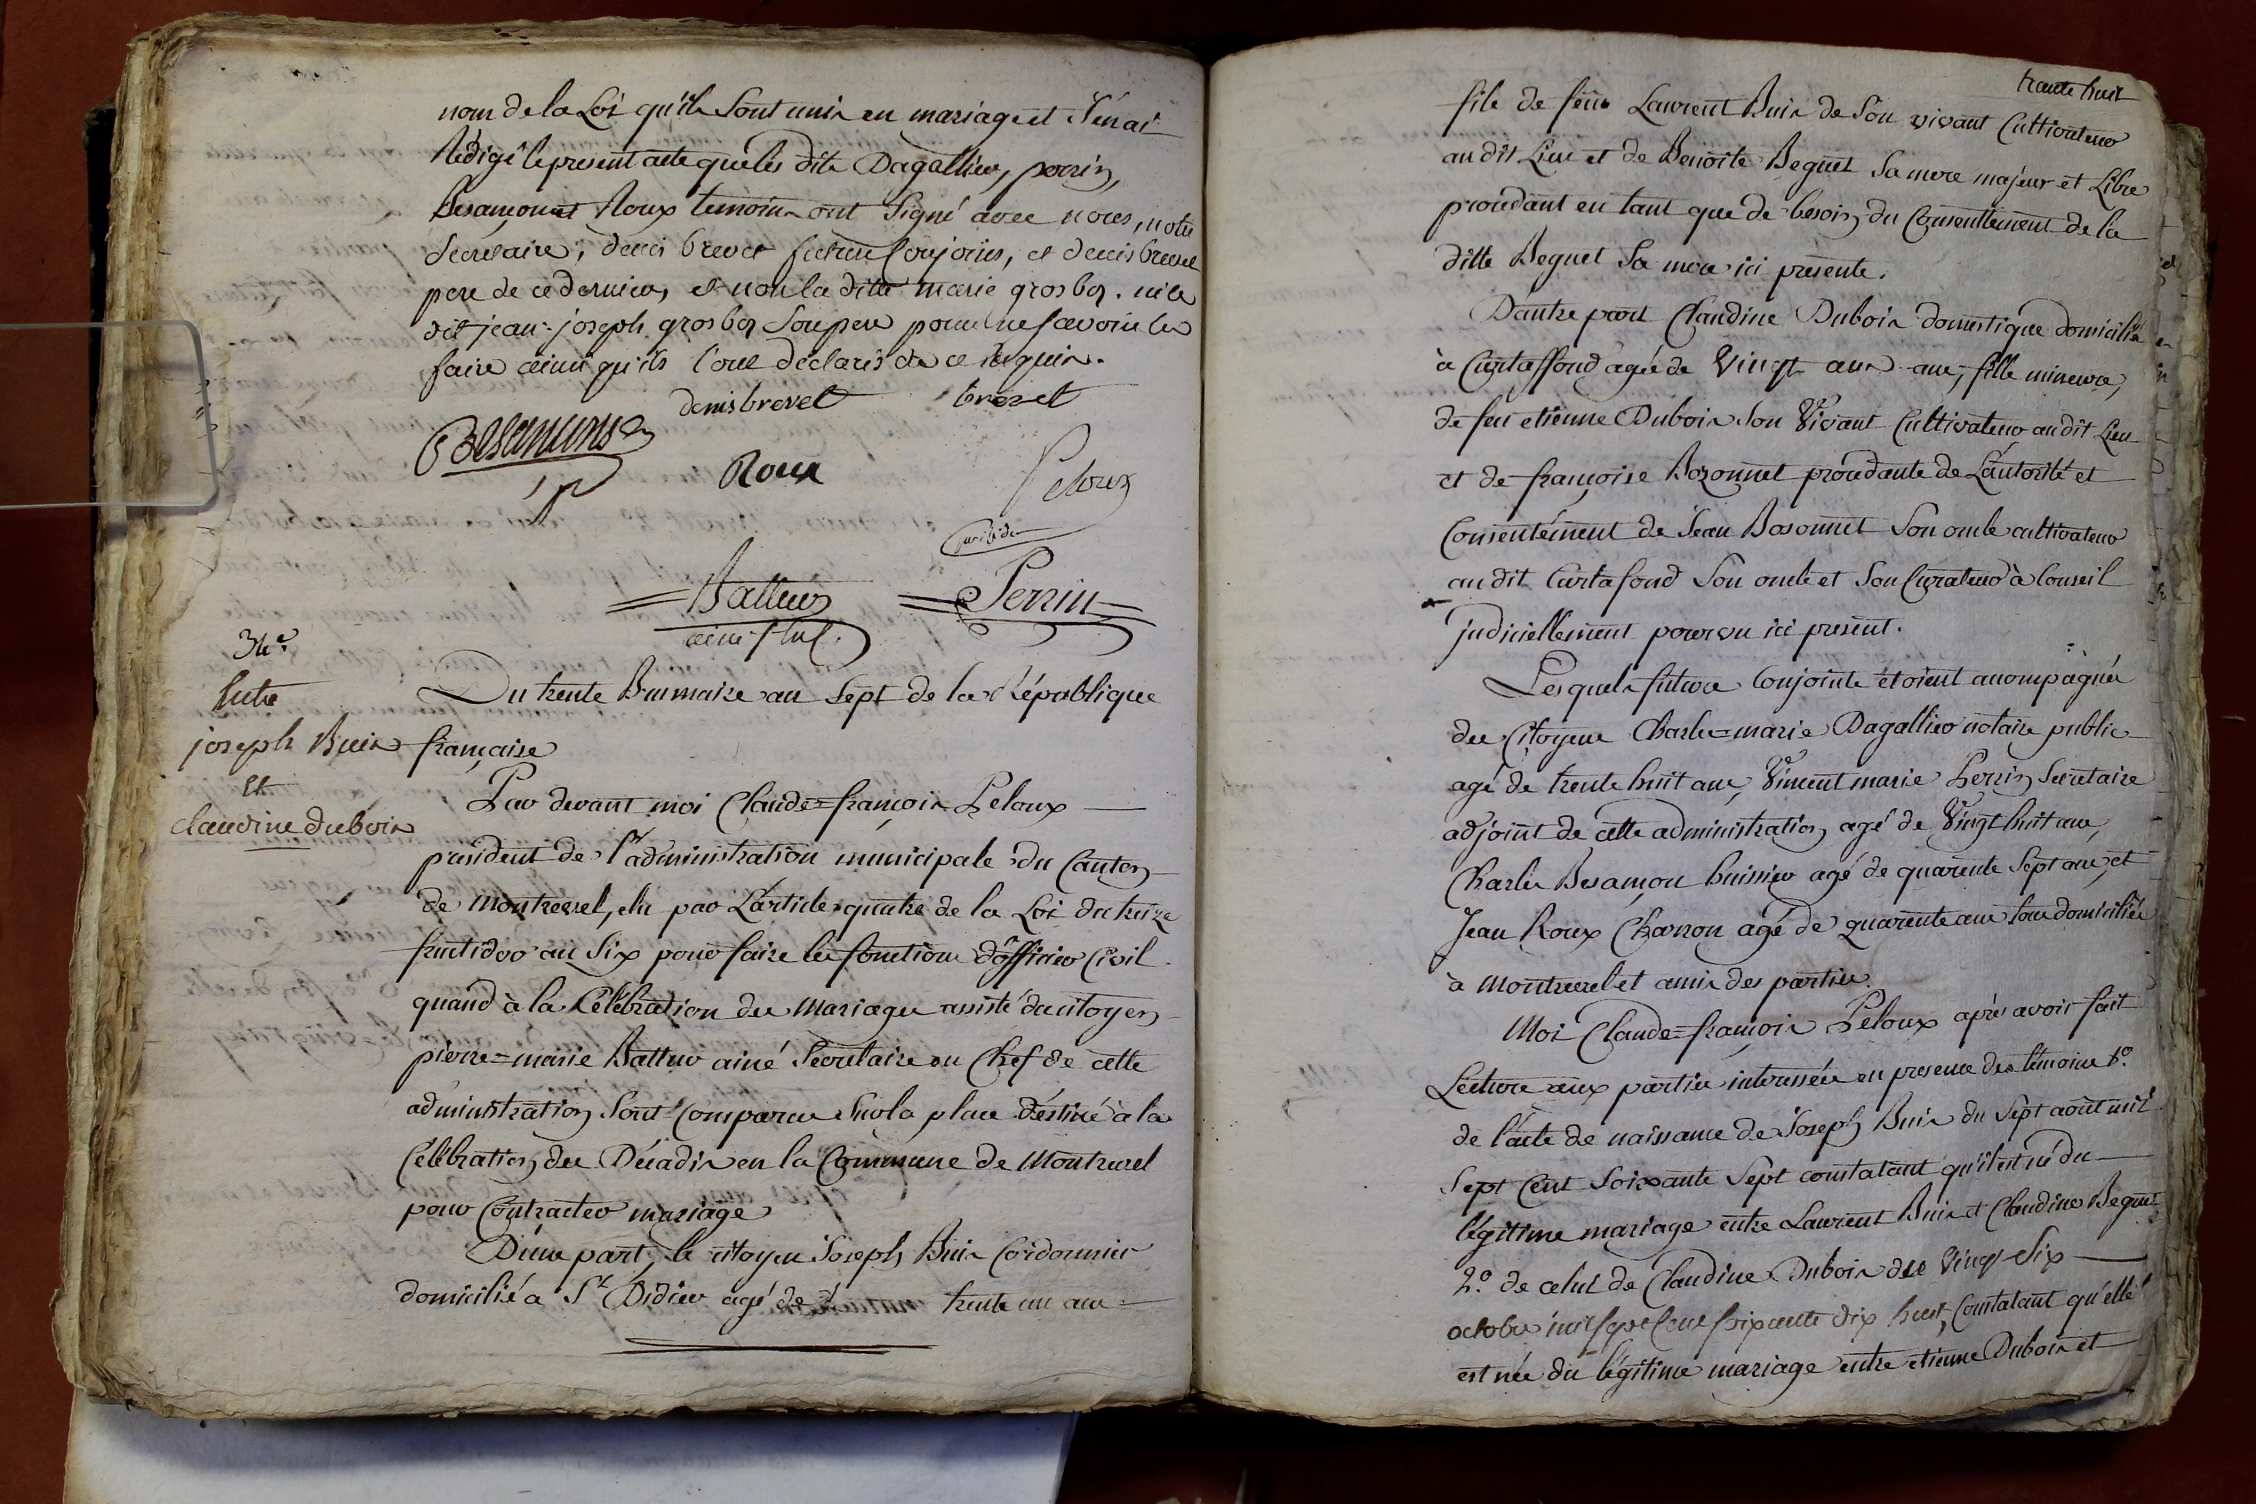 nom de la Loi qu'ils sont unis en mariage et J'en ai
Rédigé le present acte que les dits Dagallier, perrin,
Besançon et Roux temoins ont Signé avec nous, notre
Secretaire, denis brevet futur conjoins, et denis brevet
pere de ce dernier, et non la ditte marie grosbos. ni le
dit jean-joseph grosbos Son pere pour ne savoir le
faire ainsi qu'ils l'ont déclarés de ce requis.
denis brevet brevet
Besançons
Roux
Peloux
président
Battur
ainé
Perrin
34e.
Entre
joseph Buis
et
claudine dubois
Du trente Brumaire an Sept de la République
française
Par devant moi Claude=françois Peloux
president de l'administration municipale du Canton
de Montrevel, élu par L'article quatre de la Loi du treize
fructidor an Six pour faire les fonctions d'officier Civil
quand à la Célébration des Mariages assisté du citoyen
pierre=marie Battur ainé Secretaire en Chef de cette
administration Sont Comparus Sur la place déstiné à la
Célébration des Décadis en la Commune de Montrevel
pour Contracter mariage
D'une part, le citoyen Joseph Buis Cordonnier
domicilié a St Didier agé de trente un ans
trante huit
fils de feu Laurent Buis de Son vivant Cultivateur
au dit Lieu et de Benoite Beguet Sa mere majeur et Libre
procédant en tant que de besoin du Consentement de la
ditte Beguet Sa mere ici présente.
D'autre part Claudine Dubois domestique domiciliée
à Curtaffond agée de Vingt ans ans, fille mineure,
de feu etienne Dubois Son Vivant Cultivateur au dit Lieu
et de françoise Bozonnet procédante de L'autorité et
Consentément de Jean Bosonnet Son oncle cultivateur
au dit Curtafond Son oncle et Son Curateur à Conseil
judiciellement pourvu ici present.
Lesquels futurs Conjoints étoient accompagnés
des Citoyens Charles=marie Dagallier notaire public
agé de trente huit ans, Vincent marie Perrin Secretaire
adjoint de cette administration agé de Vingt huit ans,
Charles Besançon huissier agé de quarente Sept ans, et
Jean Roux Charron agé de quarente ans tous domiciliés
à Montrevel et amis des parties.
Moi Claude=françois Peloux après avoir fait
Lecture aux parties interessées en presence des témoins 1o.
de l'acte de naissance de Joseph Buis du Sept août mil
Sept Cent Soixante Sept constatant qu'il est né du
légitime mariage entre Laurent Buis et Claudine Beguet
2o. de celui de Claudine Dubois du Vingt Six
octobre mil sept Cent soixante dix huit, Constatant qu'elle
est née du légitime mariage entre etienne Dubois et